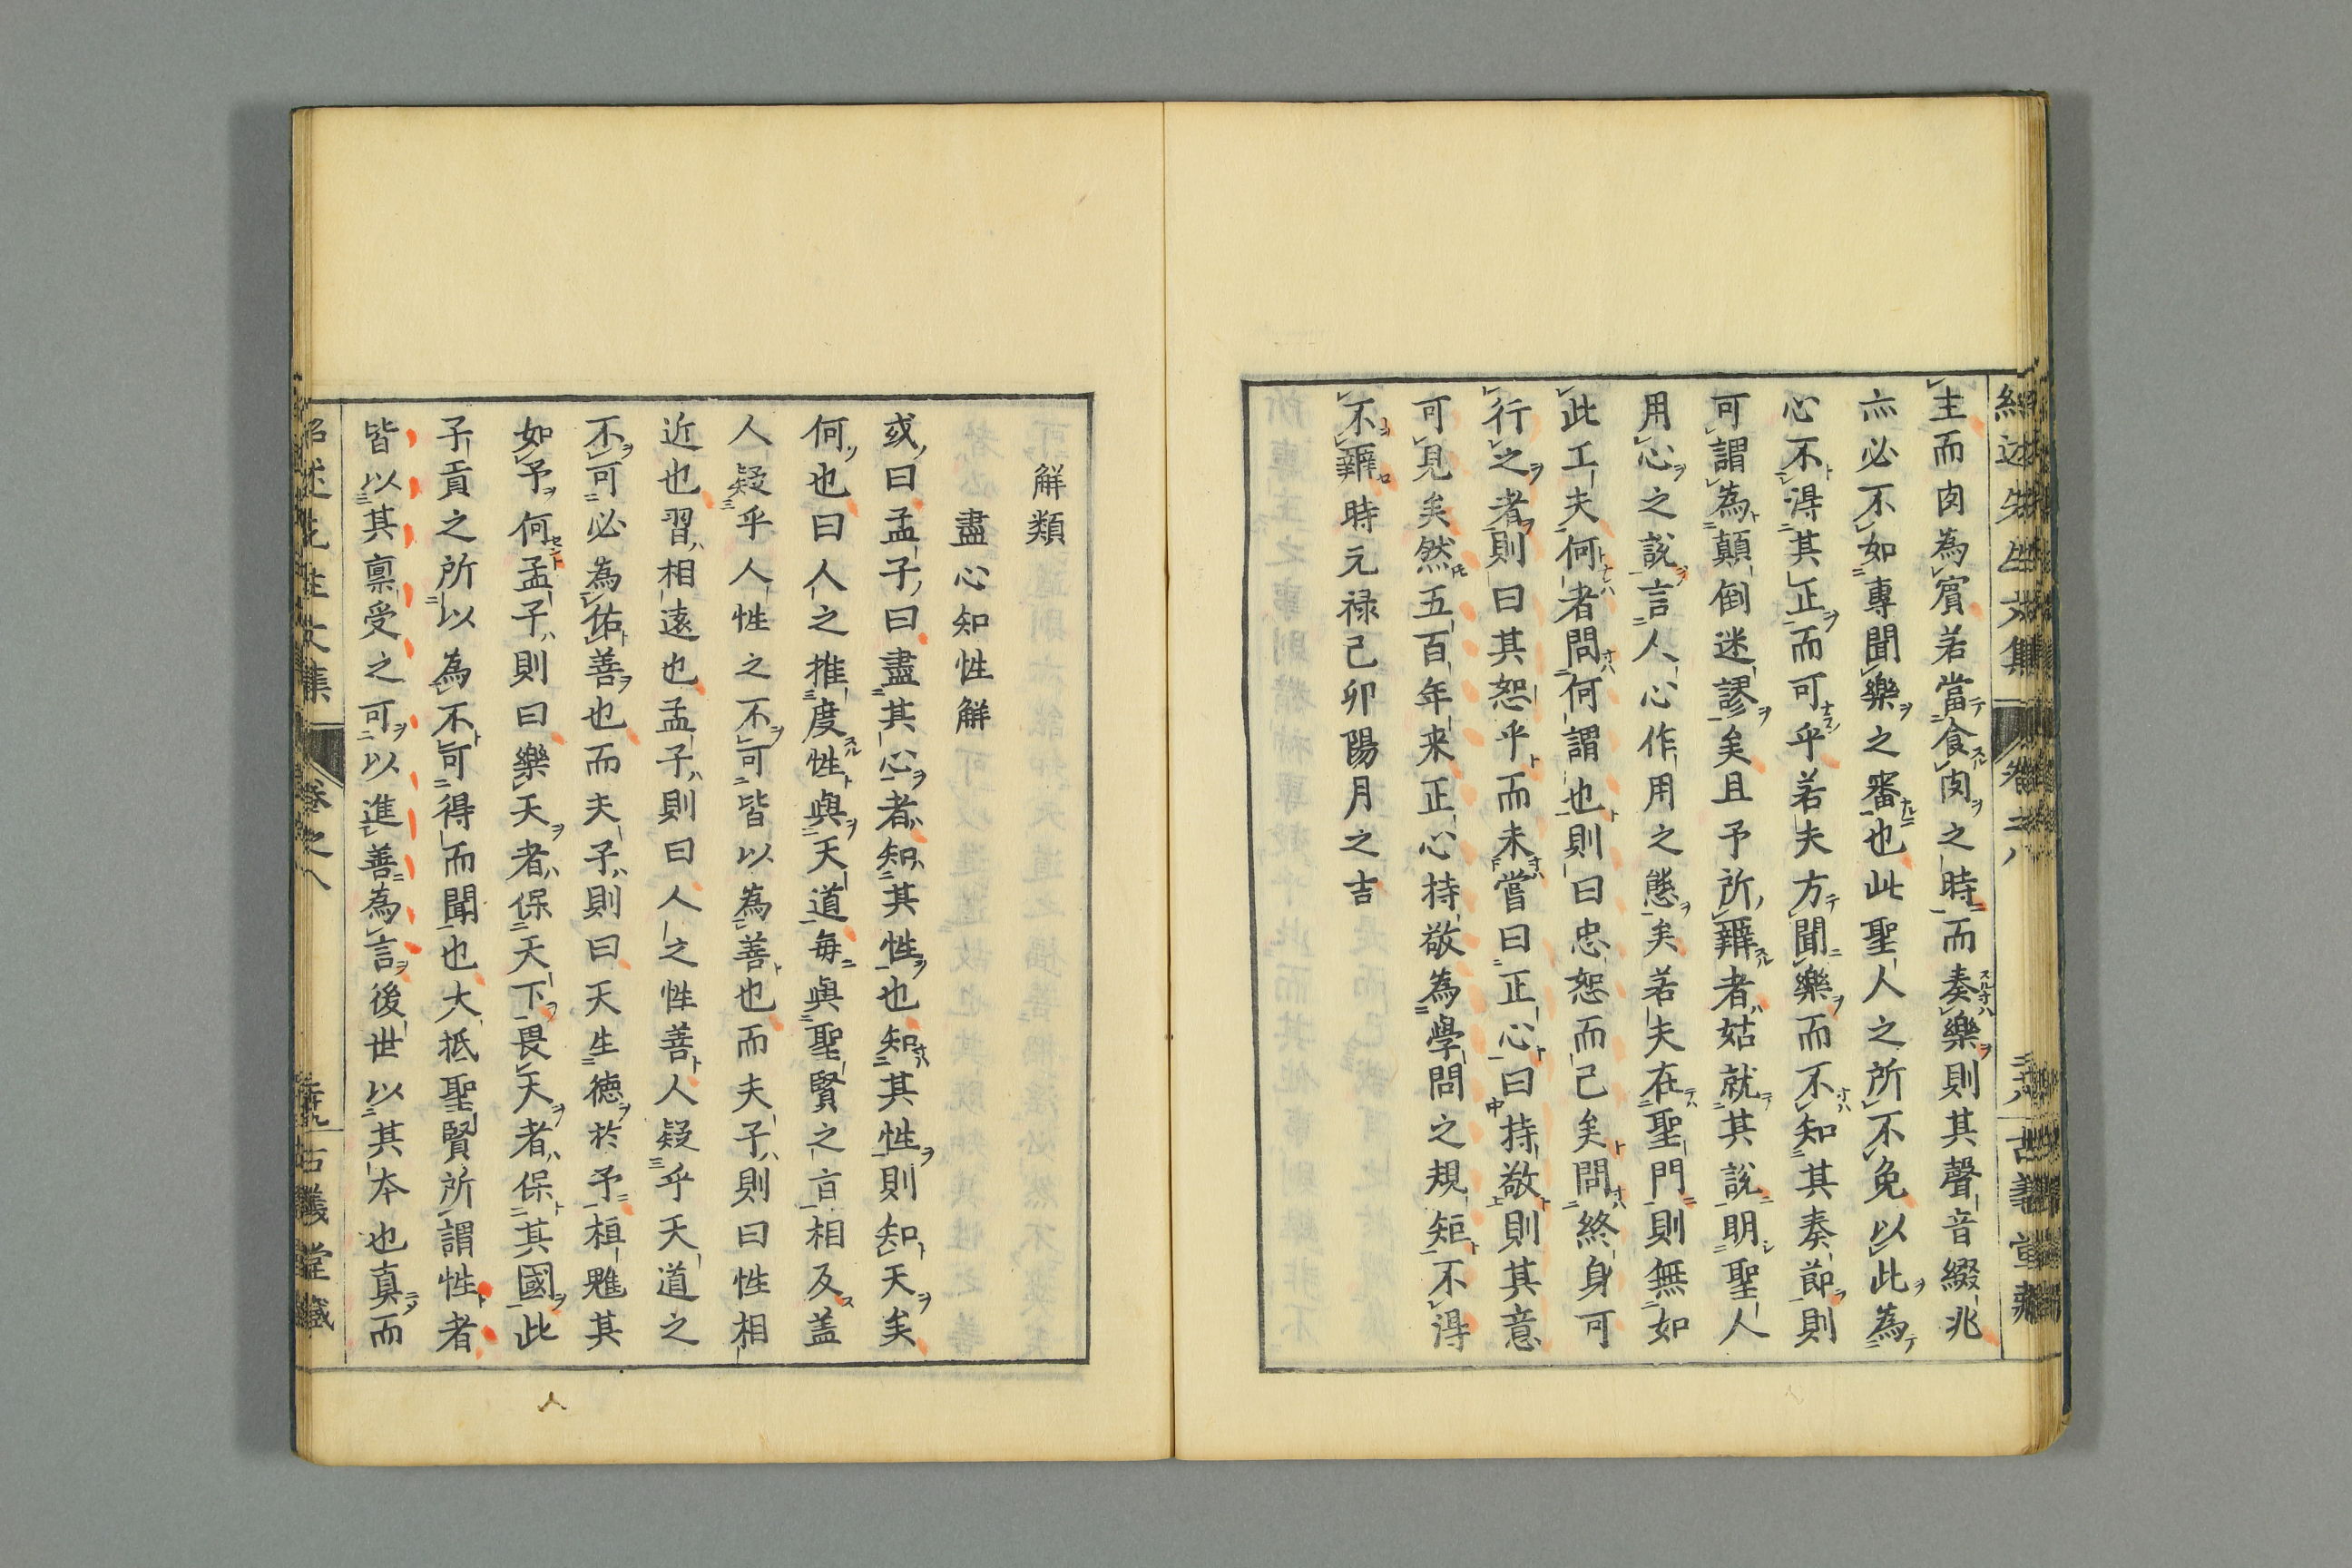 主而肉為賓若當食肉之時而奏樂則其聲音綴兆
亦必不如專聞樂之審也此聖人之所不免以此為
心不得其正而可乎若夫方聞樂而不知其奏節則
可謂為顛倒迷謬矣且予所辨者姑就其說明聖人
用心之說言人心作用之態矣若夫在聖門則無如
此工夫何者問何謂也則曰忠恕而已矣問終身可
行之者則曰其恕乎而未嘗曰正心曰持敬則其意
可見矣然五百年来正心持敬為學問之規矩不得
不辨時元禄己卯陽月之吉
解類
盡心知性解
或曰孟子曰盡其心者知其性也知其性則知天矣
何也曰人之推度性與天道毎與聖賢之言相反盖
人疑乎人性之不可皆以為善也而夫子則曰性相
近也習相遠也孟子則曰人之性善人疑乎天道之
不可必為佑善也而夫子則曰天生德於予桓魋其
如予何孟子則曰樂天者保天下畏天者保其國此
子貢之所以為不可得而聞也大抵聖賢所謂性者
皆以其禀受之可以進善為言後世以其本也真而
紹述先生文集
卷之八
古義堂藏